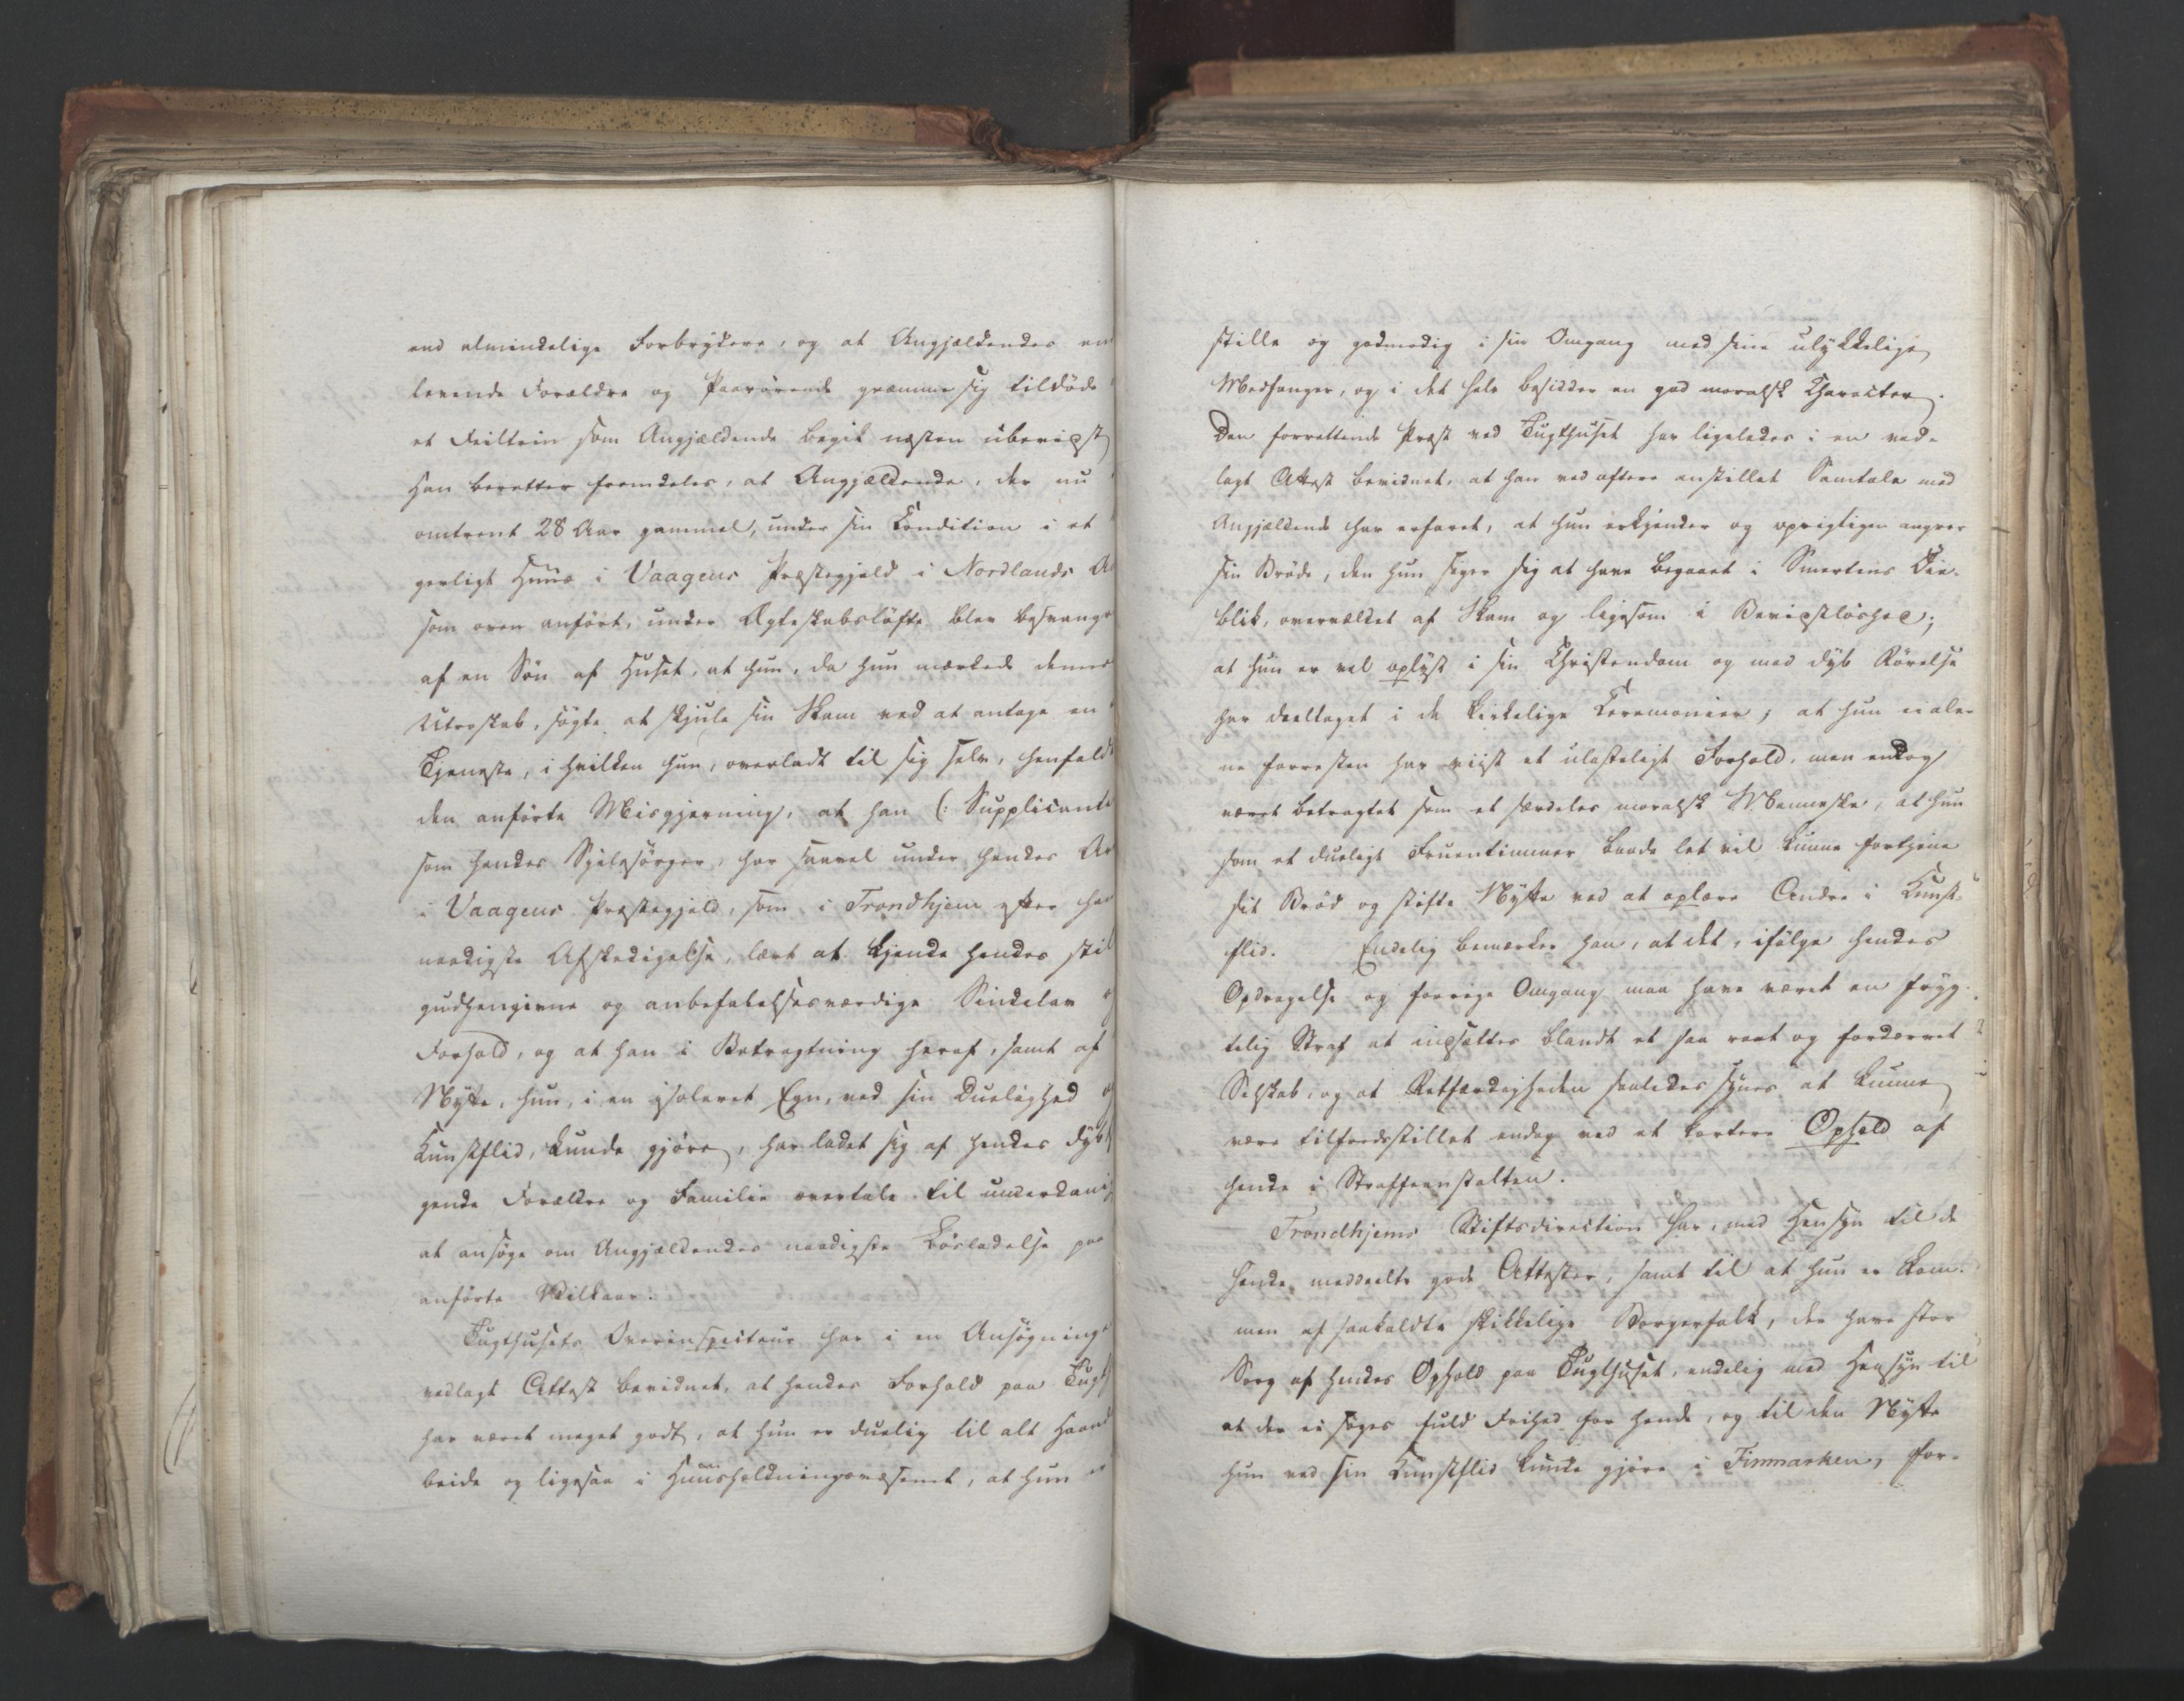 end almindelige Forbrydere, og at Angjældendes en
levende Forældre og Paarørende græmme sig tildöde
et Feiltrin som Angjældende begik næsten ubevidst
Han beretter fremdeles, at Angjældende, der nu
omtrent 28 Aar gammel, under sin Condition i et
gerligt Huus i Vaagens Præstegjeld i Nordlands A
som oven anfört, under Ægteskabslöfte blev besvangr
af en Sön af Huset, at hun, da hun mærkede dennes
Utroskab, sögte at skjule sin Skam ved at antage en
Tjeneste, i hvilken hun, overladt til sig selv, henfaldt
den anförte Misgjerning, at han (: Supplicante
som hendes Sjelesörger, har saavel under hendes Ar
i Vaagens Præstegjeld, som i Trondhjem efter ha
naadigste Afskedigelse, lært at kjende hendes stil
gudhengivne og anbefalelsesværdige Sindelav
Forhold, og at han i Betragtning heraf, samt af
Nytte, hun, i en isoleret Egn, ved sin Duelighed og
Kunstflid, kunde gjöre, har ladet sig af hendes dybt
gende Forældre og Familie overtale til underdanig
at ansöge om Angjældendes naadigste Lösladelse paa
anförte Vilkaar.
Tugthusets Overinspecteur har i en Ansögninge
vedlagt Attest bevidnet, at hendes Forhold paa Tugt
har været meget godt, at hun er duelig til alt Haand
beide og ligesaa i Huusholdningsvæsenet, at hun er
stille og godmodig i sin Omgang med sine ulykkelige
Medfanger, og i det hele besidder en god moralsk Character.
Den forrettende Præst ved Tugthuset har ligeledes i en ved-
lagt Attest bevidnet, at han ved oftere anstillet Samtale med
Angjældende har erfaret, at hun erkjender og oprigtigen angrer
sin Bröde, den hun siger sig at have begaaet i Smertens Öie-
blik, overvældet af Skam og ligesom i Bevidstlöshed;
at hun er vel oplyst i sin Christendom og med dyb Rörelse
har deeltaget i de kirkelige Ceremonier; at hun ei ale-
ne forresten har viist et ulasteligt Forhold, men endog
været betragtet som et særdeles moralsk Menneske, at hun
som et dueligt Fruentimmer baade let vil kunne fortjene
sit Bröd og stifte Nytte ved at oplære Andre i Kunst-
flid. Endelig bemærker han, at det, ifölge hendes
Opdragelse og forrige Omgang maa have været en fryg-
telig Straf at indsættes blandt et saa raat og fordærvet
Selskab, og at Retfærdigheden saaledes synes at kunne
være tilfredsstillet endog ved et kortere Ophold af
hende i Straffeanstalten.
Trondhjems Stiftsdirection har, med Hensyn til de
hende meddeelte gode Attester, samt til at hun er kom-
men af saakaldte skikkelige Borgerfolk, der have stor
Sorg af hendes Ophold paa Tugthuset, endelig med Hensyn til
at der ei söges fuld Frihed for hende, og til den Nytte
hun ved sin Kunstflid kunde gjöre i Finmarken, for-